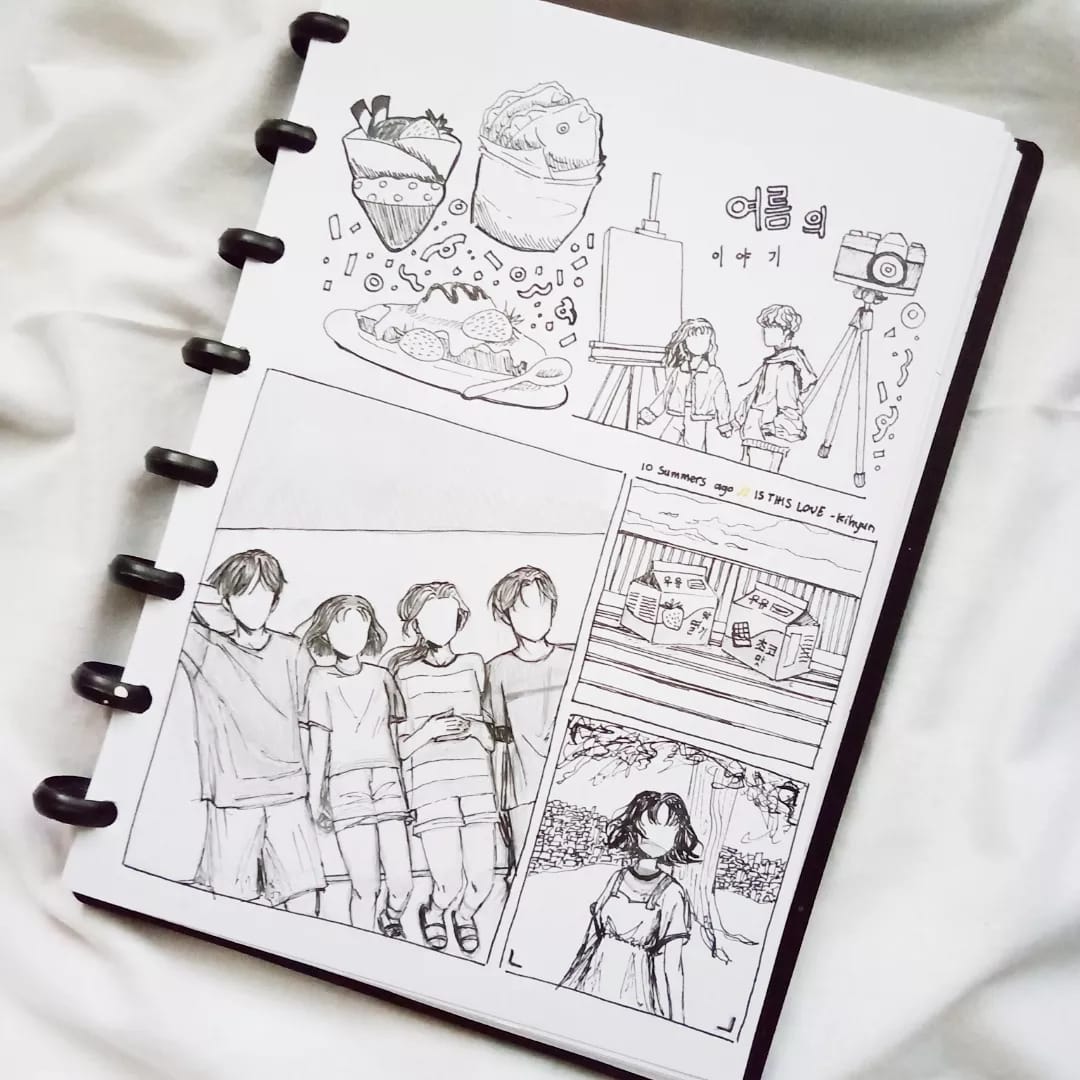 여름의
이야기
10 Summers ago 🎵 IS THIS LOVE - Kihyun
우유
우유
맛
딸기
초코
맛